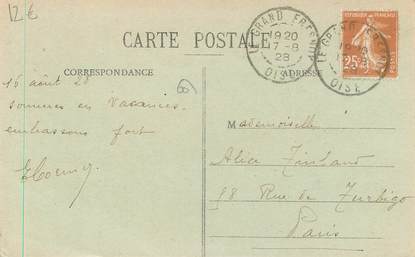 12€
CARTE POSTALE
CORRESPONDANCE
ADRESSE
LE GRAND-FRESNOY
19 20
17-8
28
OISE
REPUBLIQUE FRANCAISE
25c
60
16 août 28
sommes en vacances.
embrassons fort
Mademoiselle
Alice
98 Rue de Turbigo
Paris